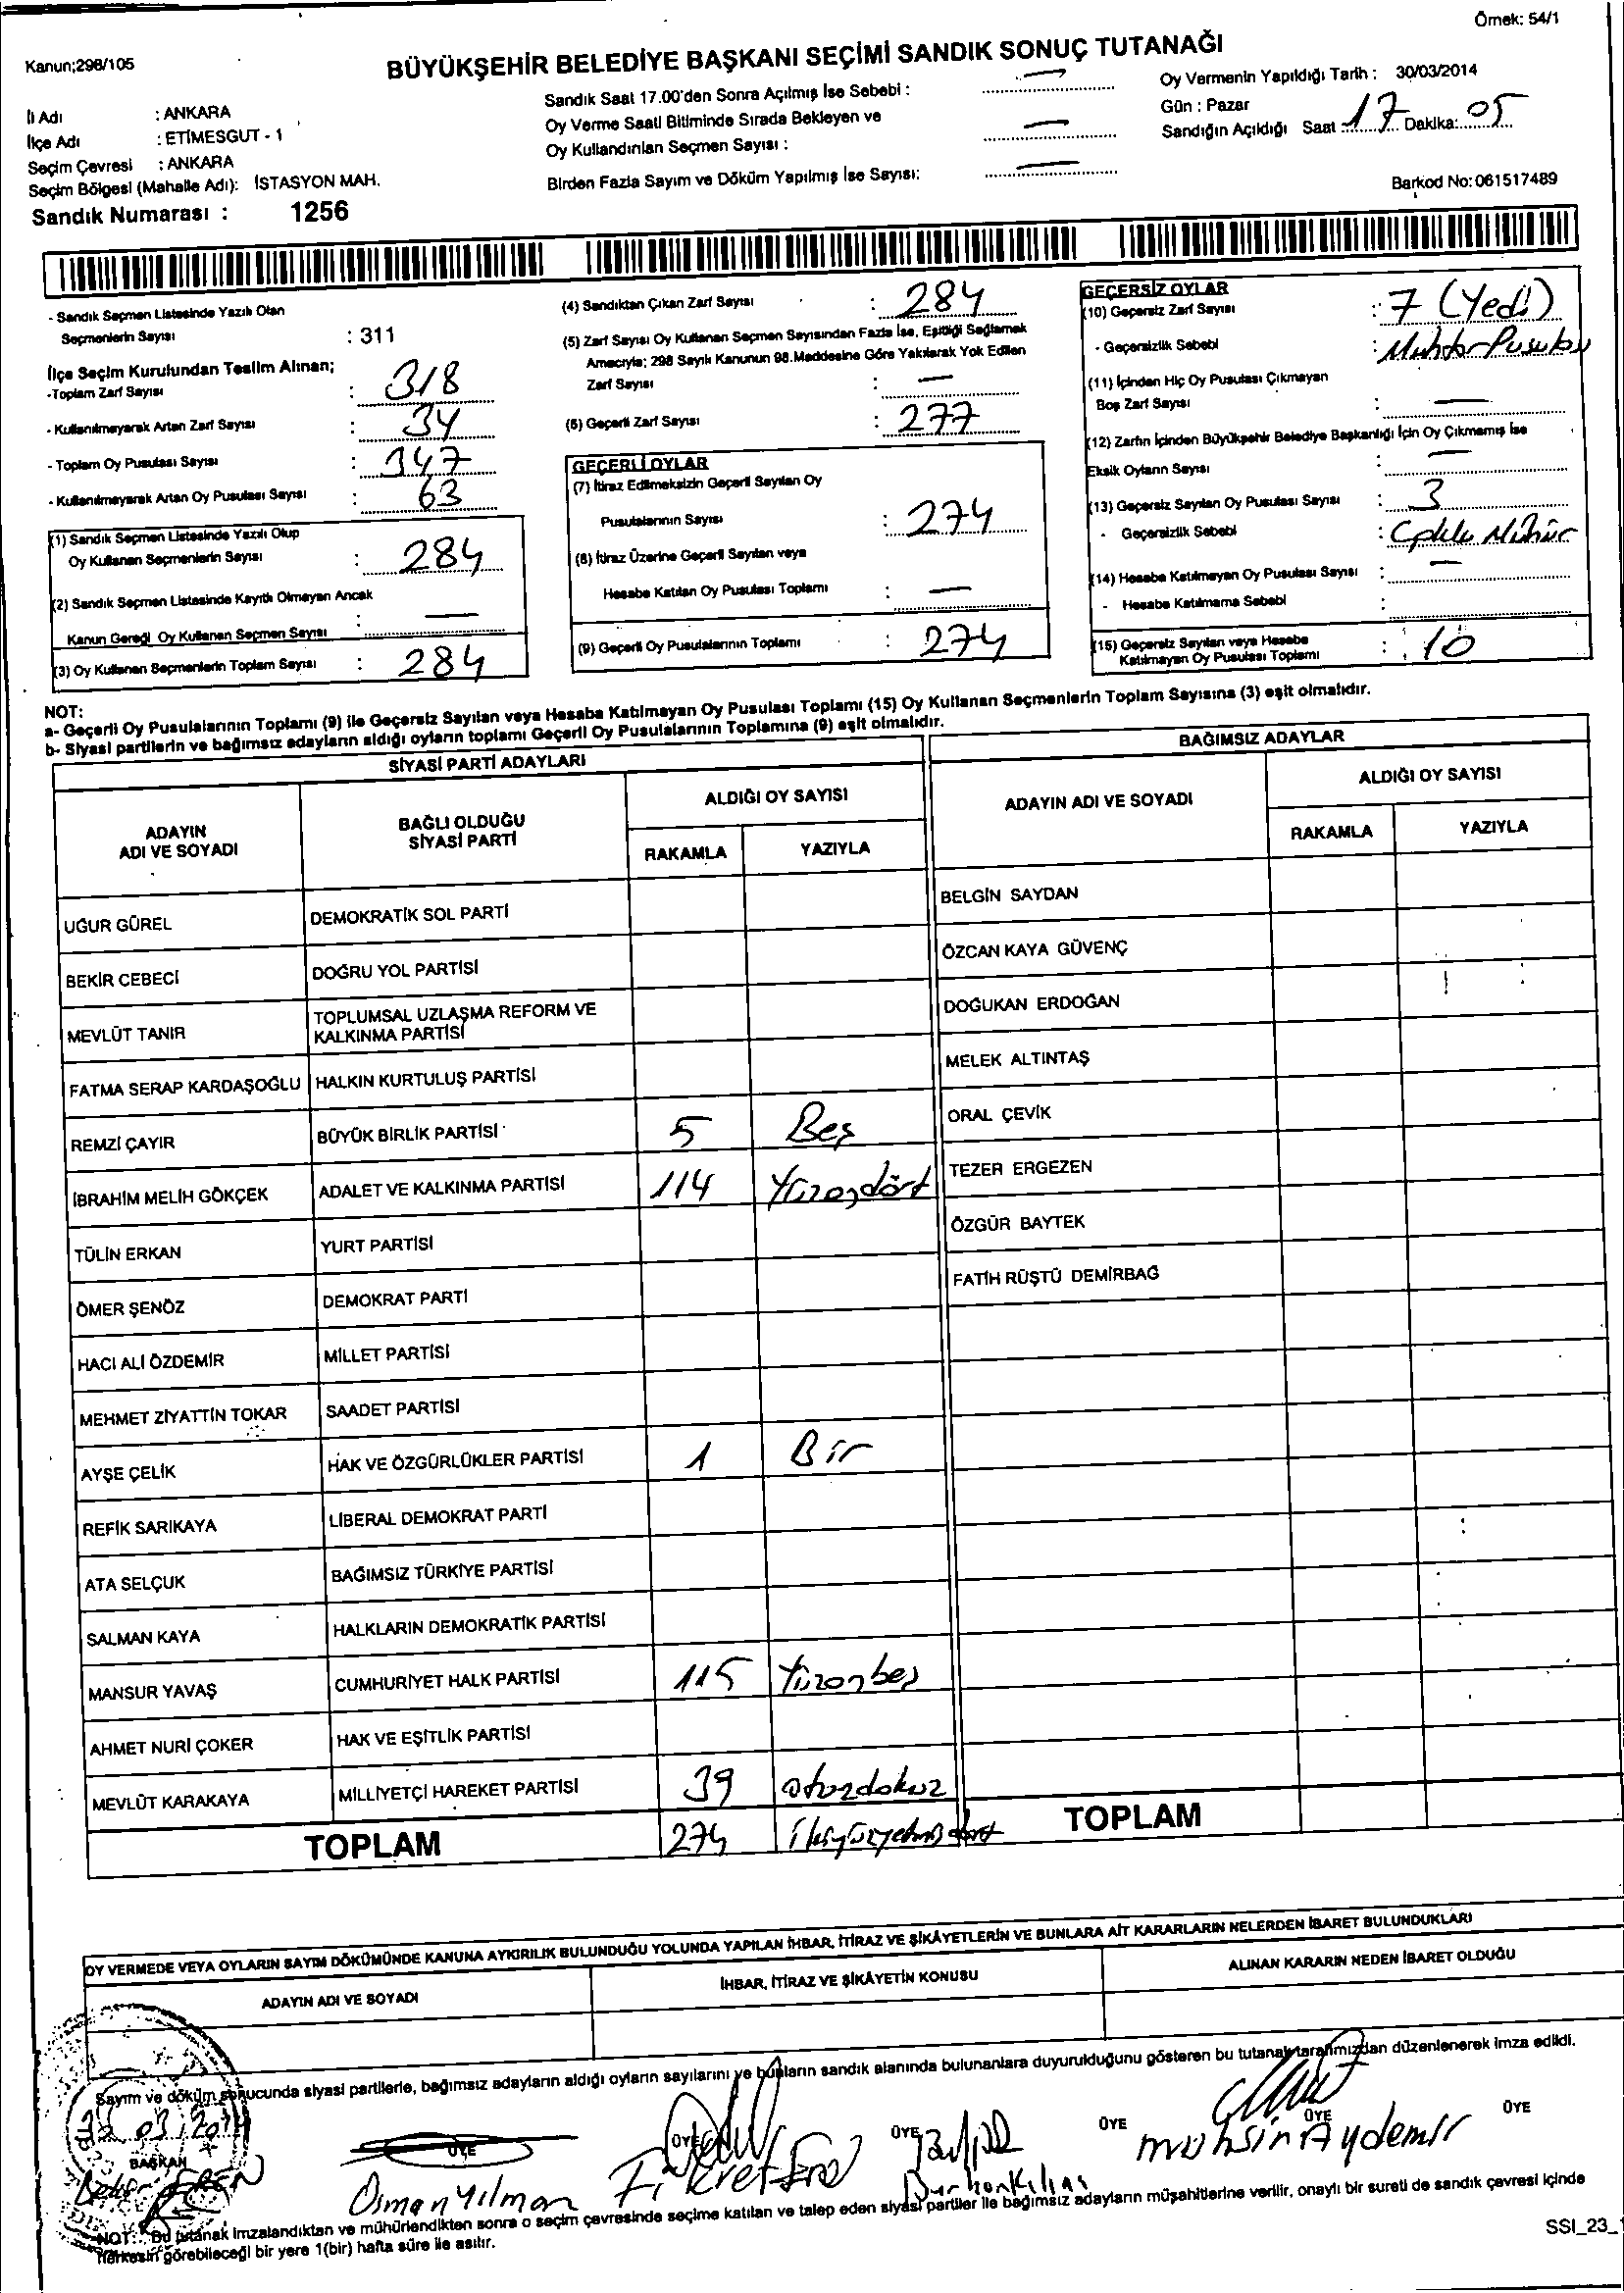 Örnek: 54/1
Kanun;298/105
BÜYÜKŞEHİR BELEDİYE BAŞKANI SEÇİMİ SANDIK SONUÇ TUTANAĞI
İl Adı : ANKARA
İlçe Adı : ETİMESGUT - 1
Seçim Çevresi : ANKARA
Seçim Bölgesi (Mahalle Adı): İSTASYON MAH.
Sandık Numarası : 1256
Sandık Saat 17.00'den Sonra Açılmış İse Sebebi : —
Oy Verme Saati Bitiminde Sırada Bekleyen ve
Oy Kullandırılan Seçmen Sayısı : —
Birden Fazla Sayım ve Döküm Yapılmış İse Sayısı: —
Oy Vermenin Yapıldığı Tarih : 30/03/2014
Gün : Pazar
Sandığın Açıldığı Saat : 17 Dakika: 05
Barkod No: 061517489
- Sandık Seçmen Listesinde Yazılı Olan
Seçmenlerin Sayısı : 311
İlçe Seçim Kurulundan Teslim Alınan;
-Toplam Zarf Sayısı : 318
- Kullanılmayarak Artan Zarf Sayısı : 34
- Toplam Oy Pusulası Sayısı : 347
- Kullanılmayarak Artan Oy Pusulası Sayısı : 63
(1) Sandık Seçmen Listesinde Yazılı Olup
Oy Kullanan Seçmenlerin Sayısı : 284
(2) Sandık Seçmen Listesinde Kayıtlı Olmayan Ancak
Kanun Gereği Oy Kullanan Seçmen Sayısı : —
(3) Oy Kullanan Seçmenlerin Toplam Sayısı : 284
(4) Sandıktan Çıkan Zarf Sayısı : 284
(5) Zarf Sayısı Oy Kullanan Seçmen Sayısından Fazla İse, Eşitliği Sağlamak
Amacıyla; 298 Sayılı Kanunun 98.Maddesine Göre Yakılarak Yok Edilen
Zarf Sayısı : —
(6) Geçerli Zarf Sayısı : 277
GEÇERLİ OYLAR
(7) İtiraz Edilmeksizin Geçerli Sayılan Oy
Pusulalarının Sayısı : 274
(8) İtiraz Üzerine Geçerli Sayılan veya
Hesaba Katılan Oy Pusulası Toplamı : —
(9) Geçerli Oy Pusulalarının Toplamı : 274
GEÇERSİZ OYLAR
(10) Geçersiz Zarf Sayısı : 7 (Yedi)
- Geçersizlik Sebebi : Muhtar Pusulası
(11) İçinden Hiç Oy Pusulası Çıkmayan
Boş Zarf Sayısı : —
(12) Zarfın İçinden Büyükşehir Belediye Başkanlığı İçin Oy Çıkmamış İse
Eksik Oyların Sayısı : —
(13) Geçersiz Sayılan Oy Pusulası Sayısı : 3
- Geçersizlik Sebebi : Çoklu Mühür
(14) Hesaba Katılmayan Oy Pusulası Sayısı : —
- Hesaba Katılmama Sebebi :
(15) Geçersiz Sayılan veya Hesaba
Katılmayan Oy Pusulası Toplamı : 10
NOT:
a- Geçerli Oy Pusulalarının Toplamı (9) ile Geçersiz Sayılan veya Hesaba Katılmayan Oy Pusulası Toplamı (15) Oy Kullanan Seçmenlerin Toplam Sayısına (3) eşit olmalıdır.
b- Siyasi partilerin ve bağımsız adayların aldığı oyların toplamı Geçerli Oy Pusulalarının Toplamına (9) eşit olmalıdır.
SİYASİ PARTİ ADAYLARI
ADAYIN
ADI VE SOYADI
BAĞLI OLDUĞU
SİYASİ PARTİ
ALDIĞI OY SAYISI
RAKAMLA YAZIYLA
UĞUR GÜREL DEMOKRATİK SOL PARTİ
BEKİR CEBECİ DOĞRU YOL PARTİSİ
MEVLÜT TANIR TOPLUMSAL UZLAŞMA REFORM VE
KALKINMA PARTİSİ
FATMA SERAP KARDAŞOĞLU HALKIN KURTULUŞ PARTİSİ
REMZİ ÇAYIR BÜYÜK BİRLİK PARTİSİ 5 Beş
İBRAHİM MELİH GÖKÇEK ADALET VE KALKINMA PARTİSİ 114 Yüzondört
TÜLİN ERKAN YURT PARTİSİ
ÖMER ŞENÖZ DEMOKRAT PARTİ
HACI ALİ ÖZDEMİR MİLLET PARTİSİ
MEHMET ZİYATTİN TOKAR SAADET PARTİSİ
AYŞE ÇELİK HAK VE ÖZGÜRLÜKLER PARTİSİ 1 Bir
REFİK SARIKAYA LİBERAL DEMOKRAT PARTİ
ATA SELÇUK BAĞIMSIZ TÜRKİYE PARTİSİ
SALMAN KAYA HALKLARIN DEMOKRATİK PARTİSİ
MANSUR YAVAŞ CUMHURİYET HALK PARTİSİ 115 Yüzonbeş
AHMET NURİ ÇOKER HAK VE EŞİTLİK PARTİSİ
MEVLÜT KARAKAYA MİLLİYETÇİ HAREKET PARTİSİ 39 otuzdokuz
TOPLAM 274 ikiyüzyetmişdört
BAĞIMSIZ ADAYLAR
ADAYIN ADI VE SOYADI
ALDIĞI OY SAYISI
RAKAMLA YAZIYLA
BELGİN SAYDAN
ÖZCAN KAYA GÜVENÇ
DOĞUKAN ERDOĞAN
MELEK ALTINTAŞ
ORAL ÇEVİK
TEZER ERGEZEN
ÖZGÜR BAYTEK
FATİH RÜŞTÜ DEMİRBAĞ
TOPLAM
OY VERMEDE VEYA OYLARIN SAYIM DÖKÜMÜNDE KANUNA AYKIRILIK BULUNDUĞU YOLUNDA YAPILAN İHBAR, İTİRAZ VE ŞİKÂYETLERİN VE BUNLARA AİT KARARLARIN NELERDEN İBARET BULUNDUKLARI
ADAYIN ADI VE SOYADI
İHBAR, İTİRAZ VE ŞİKÂYETİN KONUSU
ALINAN KARARIN NEDEN İBARET OLDUĞU
Sayım ve döküm sonucunda siyasi partilerle, bağımsız adayların aldığı oyların sayılarını ve bunların sandık alanında bulunanlara duyurulduğunu gösteren bu tutanak tarafımızdan düzenlenerek imza edildi.
03 2014
BAŞKAN ÜYE ÜYE ÜYE ÜYE ÜYE ÜYE
EREN Osman Yılman Fikret Burhan Kılıç Muhsin Aydemir
NOT: Bu tutanak imzalandıktan ve mühürlendikten sonra o seçim çevresinde seçime katılan ve talep eden siyasi partiler ile bağımsız adayların müşahitlerine verilir, onaylı bir sureti de sandık çevresi içinde
herkesin görebileceği bir yere 1(bir) hafta süre ile asılır.
SSI_23_